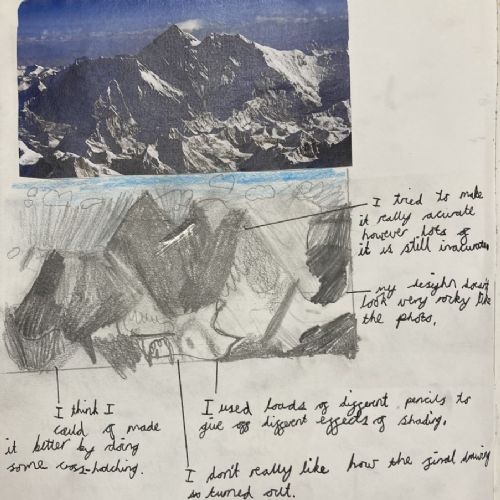 I tried to make
it really acurate
however lots of
it is still inacurate
my design doesn't
look very rocky like
the photo.
I think I
could of made
it better by doing
some cross-hatching.
I used loads of different pencils to
give off different effects of shading.
I don't really like how the final drawing
so turned out.